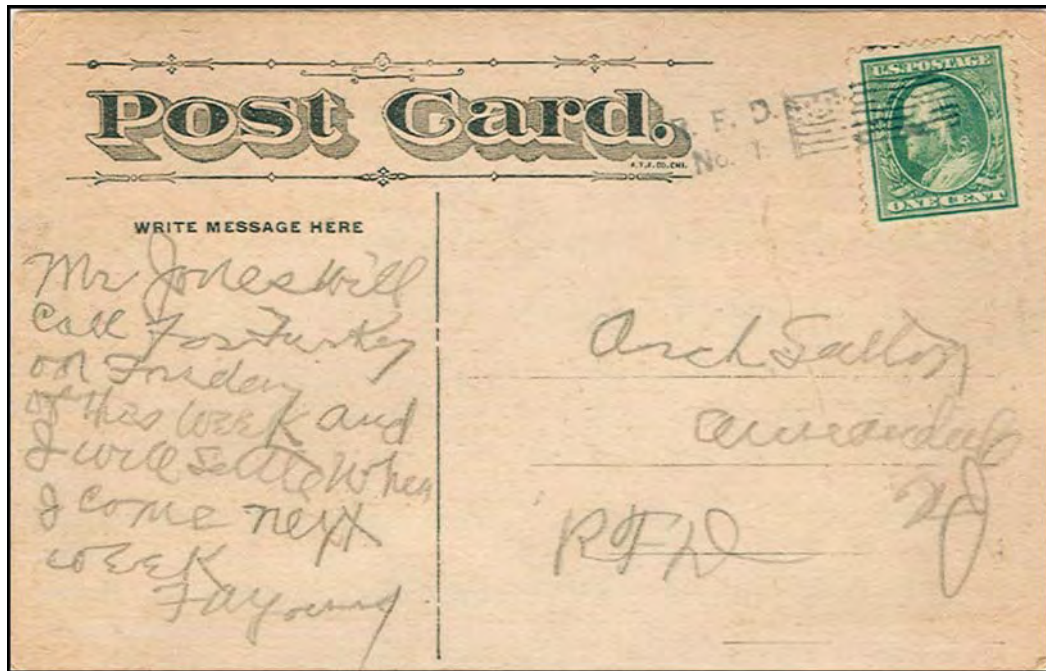 Post Card.
A.T.F. CO. CHI.
R. F. D.
No. 1
U.S. POSTAGE
ONE CENT
WRITE MESSAGE HERE
Mr Jones Will
Call For Turkey
on Friday
of this week and
I will Settle When
I come next
week
F A Young
Arch Salton
Annandale
NJ
RFD